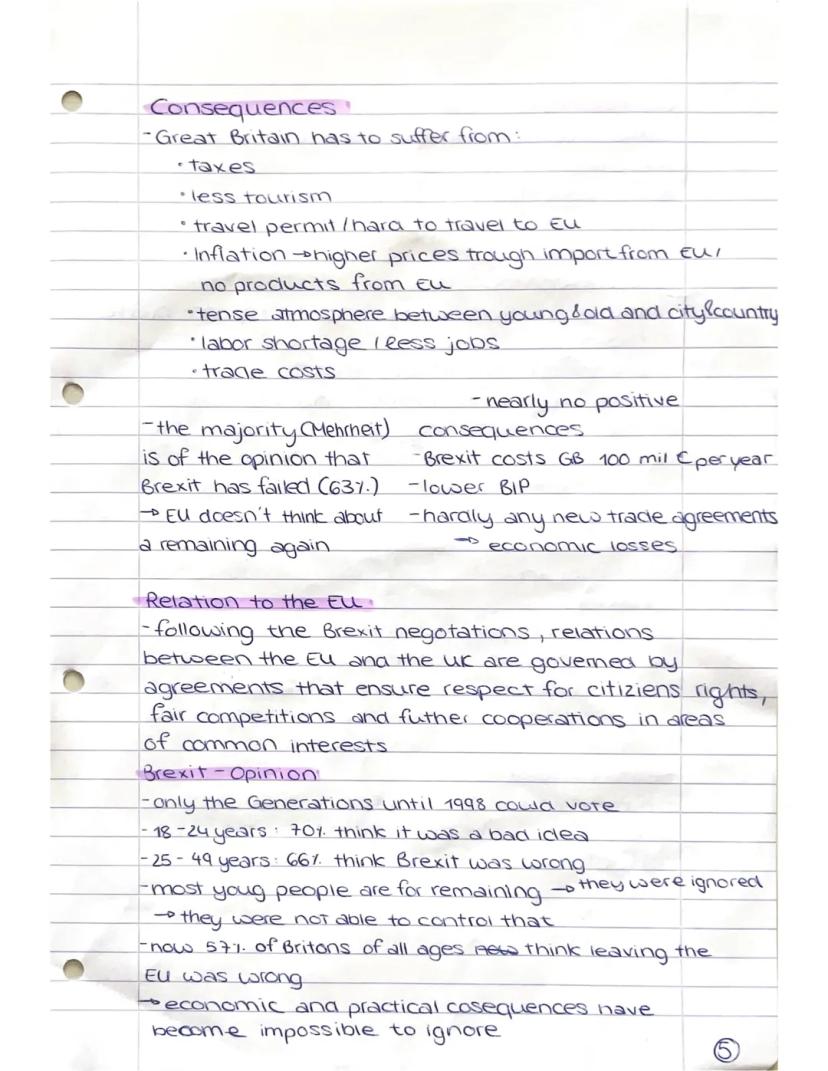 Consequences
-Great Britain has to suffer from:
• taxes
• less tourism
• travel permit / hard to travel to EU
• Inflation → higher prices trough import from EU /
no products from EU
• tense atmosphere between young & old and city & country
• labor shortage / less jobs
• trade costs
- nearly no positive
consequences
- Brexit costs GB 100 mil € per year
- lower BIP
- hardly any new trade agreements
→ economic losses
- the majority (Mehrheit)
is of the opinion that
Brexit has failed (63%)
→ EU doesn't think about
a remaining again
Relation to the EU
- following the Brexit negotations, relations
between the EU and the UK are governed by
agreements that ensure respect for citiziens rights,
fair competitions and futher cooperations in areas
of common interests
Brexit - Opinion
- only the Generations until 1998 could vote
- 18-24 years: 70% think it was a bad idea
- 25-49 years: 66% think Brexit was wrong
- most youg people are for remaining → they were ignored
→ they were not able to control that
- now 57% of Britons of all ages now think leaving the
EU was wrong
→ economic and practical cosequences have
become impossible to ignore
5